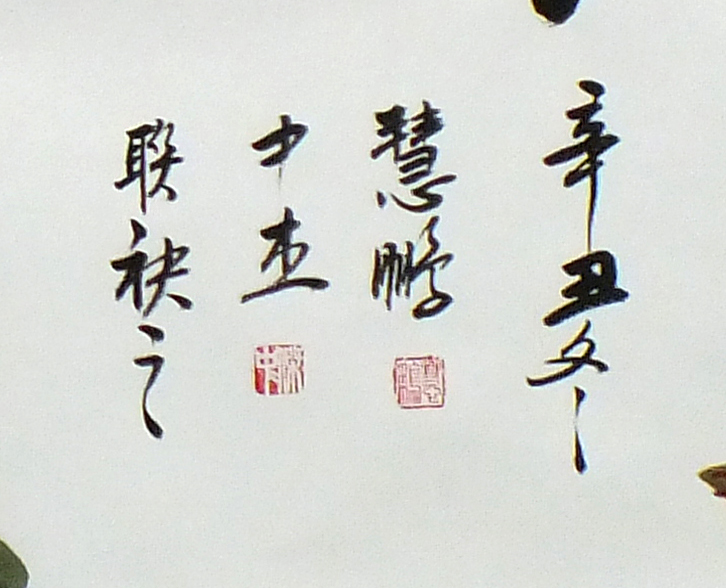 辛丑冬
慧鹏
中杰
联袂之